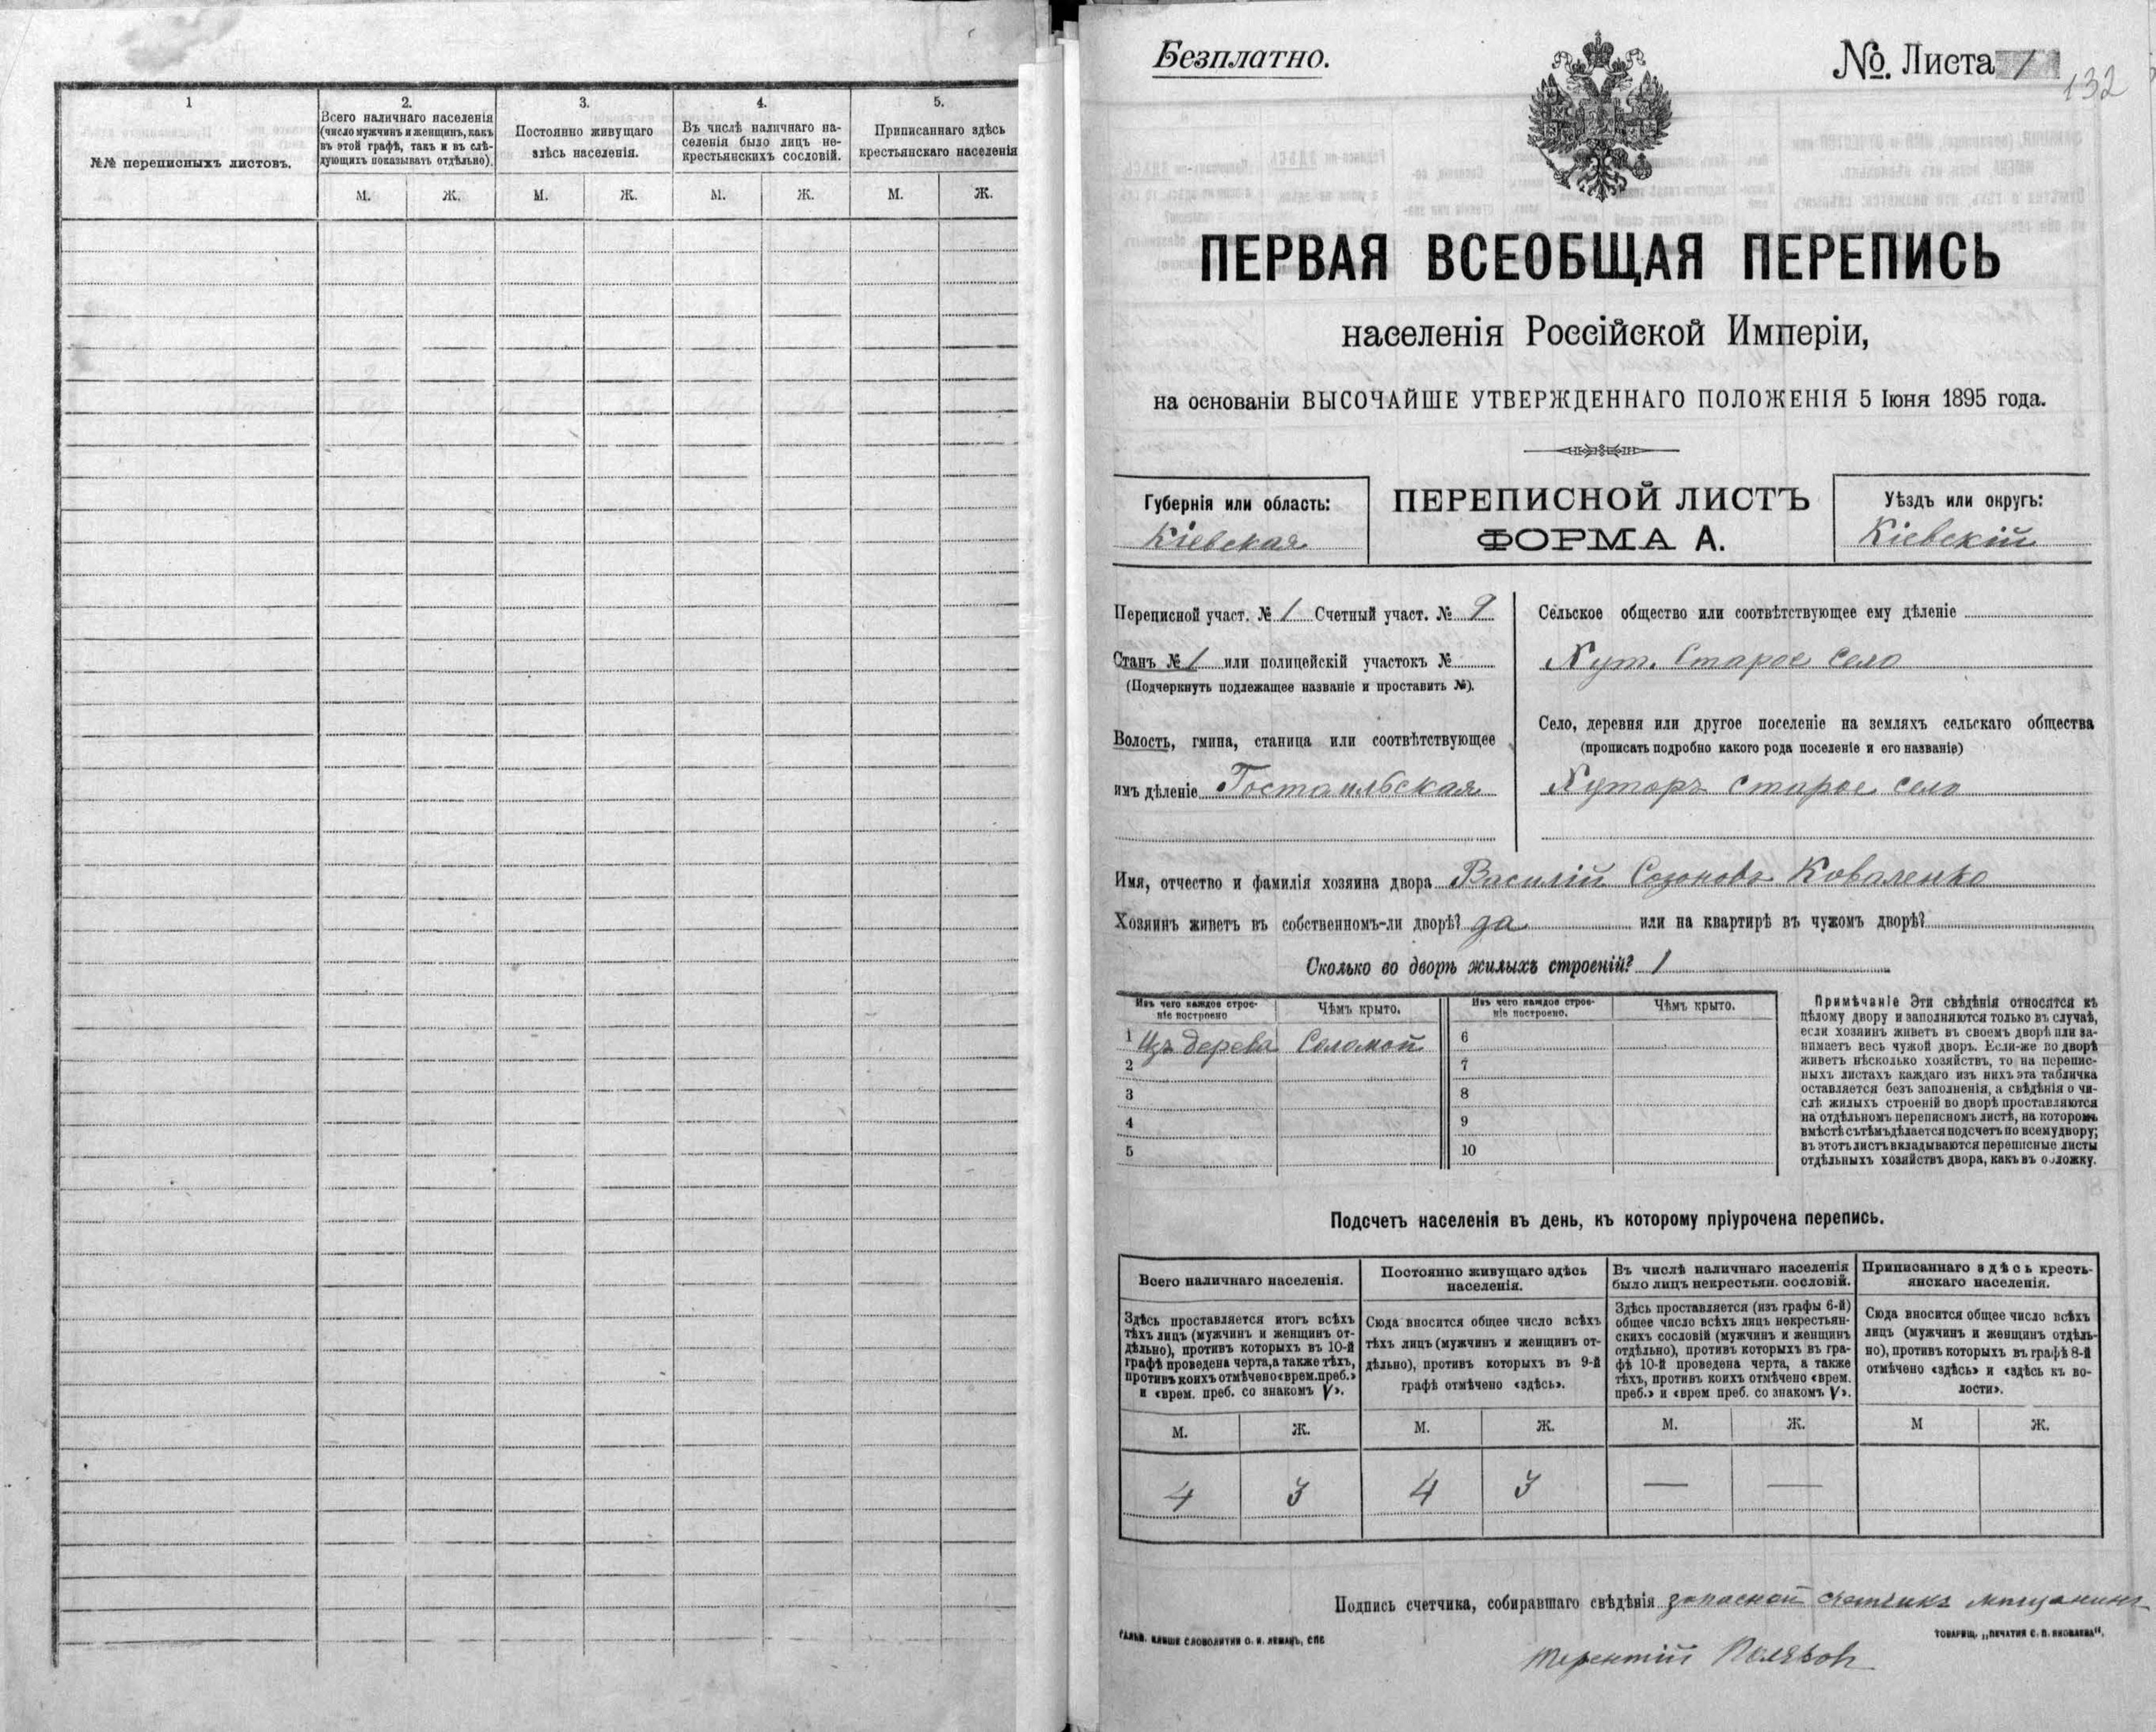 1
№№ переписныхъ листовъ.
2.
Всего наличнаго населенія
(число мужчинъ и женщинъ, какъ
въ этой графѣ, такъ и въ слѣ-
дующихъ показывать отдѣльно).
М. Ж.
3.
Постоянно живущаго
здѣсь населенія.
М. Ж.
4.
Въ числѣ наличнаго на-
селенія было лицъ не-
крестьянскихъ сословій.
М. Ж.
5.
Приписаннаго здѣсь
крестьянскаго населенія
М. Ж.
Безплатно.
№. Листа 1
132
ПЕРВАЯ ВСЕОБЩАЯ ПЕРЕПИСЬ
населенія Россійской Имперіи,
на основаніи ВЫСОЧАЙШЕ УТВЕРЖДЕННАГО ПОЛОЖЕНІЯ 5 Іюня 1895 года.
Губернія или область:
Кіевская
ПЕРЕПИСНОЙ ЛИСТЪ
ФОРМА А.
Уѣздъ или округъ:
Кіевскій
Переписной участ. № 1 Счетный участ. № 9
Станъ № 1 или полицейскій участокъ №
(Подчеркнуть подлежащее названіе и проставить №).
Волость, гмина, станица или соотвѣтствующее
имъ дѣленіе Гостомльская
Сельское общество или соотвѣтствующее ему дѣленіе
Хут. Старое село
Село, деревня или другое поселеніе на земляхъ сельскаго общества
(прописать подробно какого рода поселеніе и его названіе)
Хуторъ Старое село
Имя, отчество и фамилія хозяина двора Василій Созоновъ Коваленко
Хозяинъ живетъ въ собственномъ-ли дворѣ? да или на квартирѣ въ чужомъ дворѣ?
Сколько во дворѣ жилыхъ строеній? 1
Изъ чего каждое строе-
ніе построено
Чѣмъ крыто.
Изъ чего каждое строе-
ніе построено.
Чѣмъ крыто.
1 Изъ дерева Соломой 6
2 7
3 8
4 9
5 10
Примѣчаніе Эти свѣдѣнія относятся къ
цѣлому двору и заполняются только въ случаѣ,
если хозяинъ живетъ въ своемъ дворѣ или за-
нимаетъ весь чужой дворъ. Если-же во дворѣ
живетъ нѣсколько хозяйствъ, то на перепис-
ныхъ листахъ каждаго изъ нихъ эта табличка
оставляется безъ заполненія, а свѣдѣнія о чи-
слѣ жилыхъ строеній во дворѣ проставляются
на отдѣльномъ переписномъ листѣ, на которомъ
вмѣстѣ съ тѣмъ дѣлается подсчетъ по всему двору;
въ этотъ листъ вкладываются переписные листы
отдѣльныхъ хозяйствъ двора, какъ въ обложку.
Подсчетъ населенія въ день, къ которому пріурочена перепись.
Всего наличнаго населенія.
Здѣсь проставляется итогъ всѣхъ
тѣхъ лицъ (мужчинъ и женщинъ от-
дѣльно), противъ которыхъ въ 10-й
графѣ проведена черта, а также тѣхъ,
противъ коихъ отмѣчено «врем. преб.»
и «врем. преб. со знакомъ V».
М. Ж.
4 3
Постоянно живущаго здѣсь
населенія.
Сюда вносится общее число всѣхъ
тѣхъ лицъ (мужчинъ и женщинъ от-
дѣльно), противъ которыхъ въ 9-й
графѣ отмѣчено «здѣсь».
М. Ж.
4 3
Въ числѣ наличнаго населенія
было лицъ некрестьян. сословій.
Здѣсь проставляется (изъ графы 6-й)
общее число всѣхъ лицъ некрестьян-
скихъ сословій (мужчинъ и женщинъ
отдѣльно), противъ которыхъ въ гра-
фѣ 10-й проведена черта, а также
тѣхъ, противъ коихъ отмѣчено «врем.
преб.» и «врем преб. со знакомъ V».
М. Ж.
— —
Приписаннаго здѣсь кресть-
янскаго населенія.
Сюда вносится общее число всѣхъ
лицъ (мужчинъ и женщинъ отдѣль-
но), противъ которыхъ въ графѣ 8-й
отмѣчено «здѣсь» и «здѣсь къ во-
лости».
М Ж.
Подпись счетчика, собиравшаго свѣдѣнія запасной счетчикъ мѣщанинъ
Терентій Поляков
ГАЛЬВ. КЛИШЕ СЛОВОЛИТНИ О. И. ЛЕМАНЪ, СПБ
ТОВАРИЩ. „ПЕЧАТНЯ С. П. ЯКОВЛЕВА".